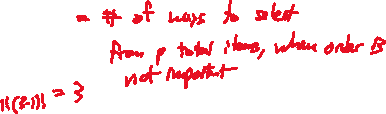 = # of ways to select
from p total items, when order is
not important
1!(3-1)! = 3